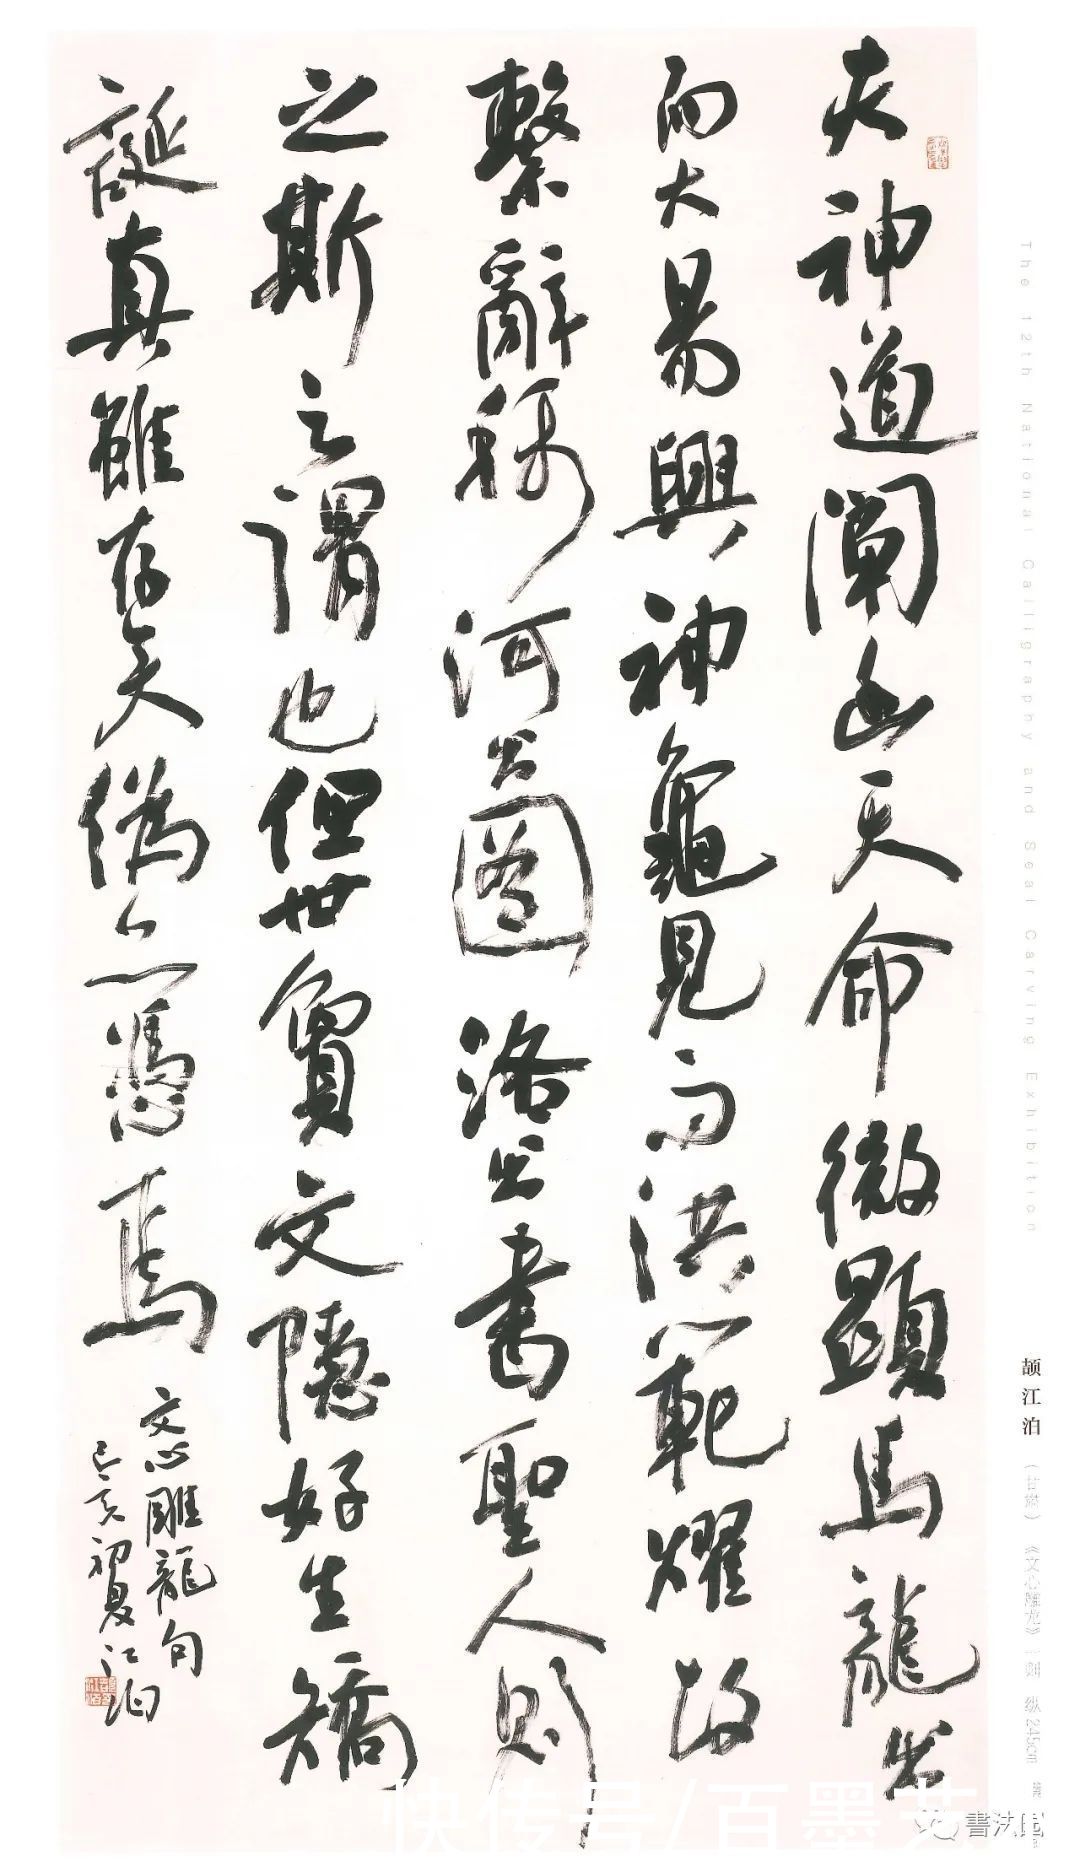 夫神道闡幽天命微顯馬龍出
而大易興神龜見而洪範耀故
繫辭稱河出圖洛出書聖人則
之斯之謂也但世夐文隱好生矯
誕真雖存矣偽亦憑焉
文心雕龍句
己亥初夏江泊
The 12th National Calligraphy and Seal Carving Exhibition
颉江泊（甘肃）《文心雕龙》一则 纵245cm
快传号/百墨艺
書法国